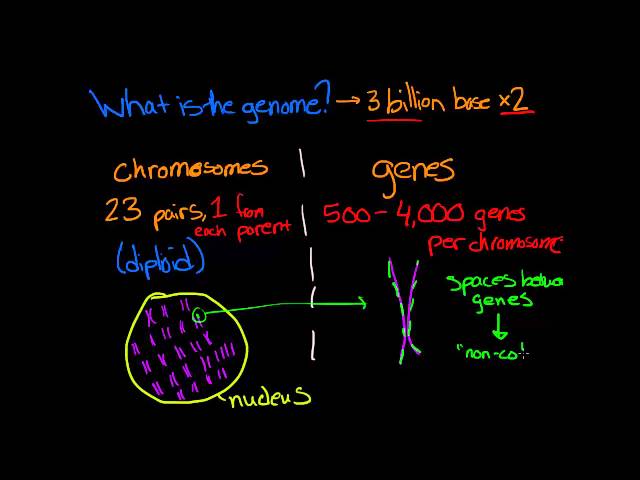 What is the genome? → 3 billion base x2
chromosomes
23 pairs, 1 from
each parent
(diploid)
nucleus
genes
500 - 4,000 genes
per chromosome
spaces between
genes
"non-co